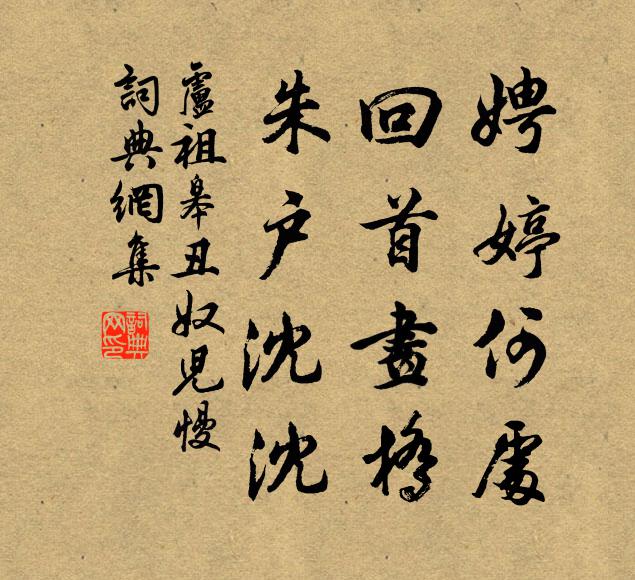 娉婷何處
回首畫橋
朱戶沈沈
盧祖皋丑奴兒慢
詞典網集
詞典網印